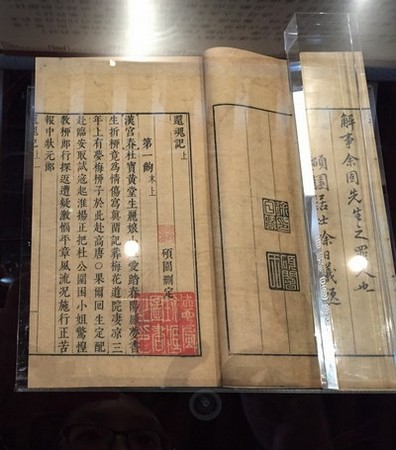 解事余固先生之罪人也
碩園居士徐日羲題
還魂記上
碩園刪定
第一齣 末上
漢宮春杜寶黃堂生麗娘小姐愛踏春陽感夢書
生折柳竟爲情傷寫眞留記葬梅花道院淒涼三
年上有夢梅柳子於此赴高唐○果爾回生定配
赴臨安取試寇起淮揚正把杜公圍困小姐驚惶
教柳郎行探返遭疑激惱平章風流况施行正苦
報中狀元郎
還魂記 上